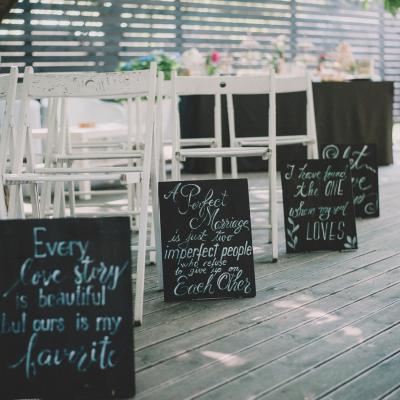 Every
love story
is beautiful
but ours is my
favorite
A Perfect
Marriage
is just two
imperfect people
who refuse
to give up on
Each Other
I have found
the ONE
whom my soul
LOVES